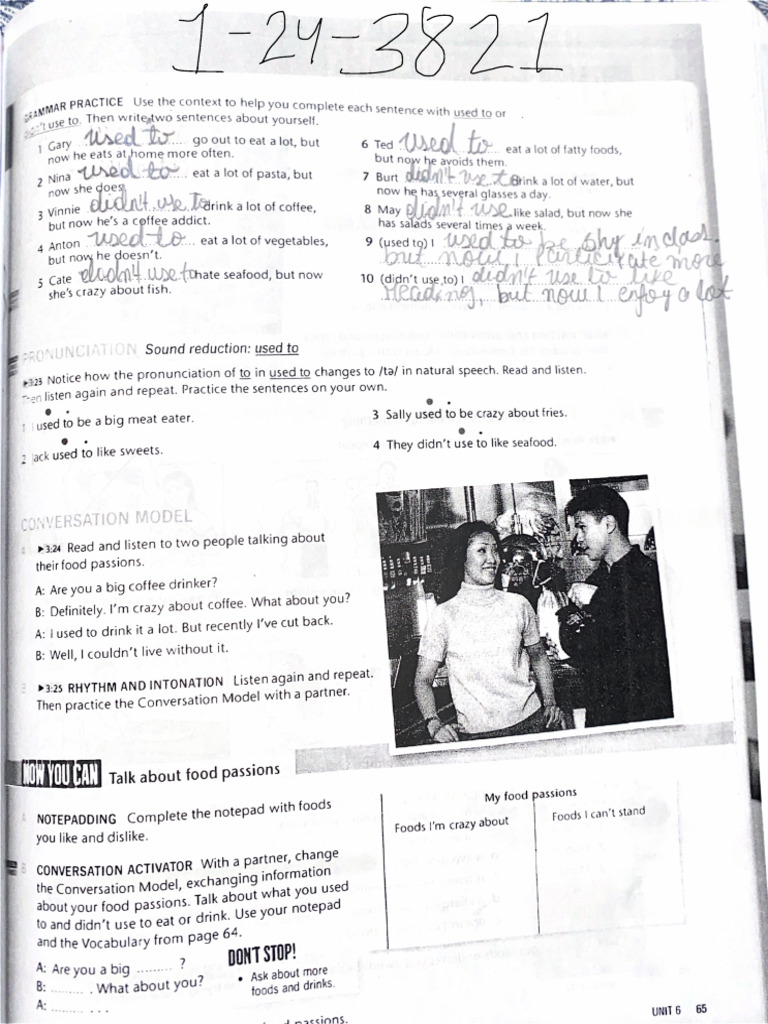 1-24-3821
GRAMMAR PRACTICE Use the context to help you complete each sentence with used to or
didn't use to. Then write two sentences about yourself.
1 Gary used to go out to eat a lot, but
now he eats at home more often.
2 Nina used to eat a lot of pasta, but
now she does.
3 Vinnie didn't use to drink a lot of coffee,
but now he's a coffee addict.
4 Anton used to eat a lot of vegetables,
but now he doesn't.
5 Cate didn't use to hate seafood, but now
she's crazy about fish.
6 Ted used to eat a lot of fatty foods,
but now he avoids them.
7 Burt didn't use to drink a lot of water, but
now he has several glasses a day.
8 May didn't use like salad, but now she
has salads several times a week.
9 (used to) I used to be shy in class.
but now I participate more
10 (didn't use to) I didn't use to like
Reading, but now I enjoy a lot
PRONUNCIATION Sound reduction: used to
▶3:23 Notice how the pronunciation of to in used to changes to /tə/ in natural speech. Read and listen.
Then listen again and repeat. Practice the sentences on your own.
1 I used to be a big meat eater.
2 Jack used to like sweets.
3 Sally used to be crazy about fries.
4 They didn't use to like seafood.
CONVERSATION MODEL
A ▶3:24 Read and listen to two people talking about
their food passions.
A: Are you a big coffee drinker?
B: Definitely. I'm crazy about coffee. What about you?
A: I used to drink it a lot. But recently I've cut back.
B: Well, I couldn't live without it.
B ▶3:25 RHYTHM AND INTONATION Listen again and repeat.
Then practice the Conversation Model with a partner.
NOW YOU CAN Talk about food passions
A NOTEPADDING Complete the notepad with foods
you like and dislike.
B CONVERSATION ACTIVATOR With a partner, change
the Conversation Model, exchanging information
about your food passions. Talk about what you used
to and didn't use to eat or drink. Use your notepad
and the Vocabulary from page 64.
A: Are you a big ......... ?
B: ......... . What about you?
A: ......... . . .
DON'T STOP!
• Ask about more
foods and drinks.
My food passions
Foods I'm crazy about
Foods I can't stand
UNIT 6 65
passions.